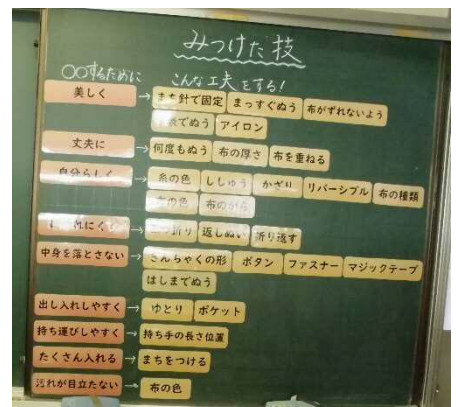 みつけた技
○○するために こんな工夫をする!
美しく → まち針で固定 まっすぐぬう 布がずれないよう
でぬう アイロン
丈夫に → 何度もぬう 布の厚さ 布を重ねる
自分らしく → 糸の色 ししゅう かざり リバーシブル 布の種類
の色 布のがら
にくく → つ折り 返しぬい 折り返す
中身を落とさない → きんちゃくの形 ボタン ファスナー マジックテープ
はしまでぬう
出し入れしやすく → ゆとり ポケット
持ち運びしやすく → 持ち手の長さ位置
たくさん入れる → まちをつける
汚れが目立たない → 布の色